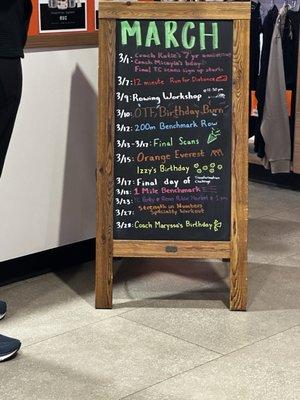 MARCH
3/1: Coach Katie's 7 yr anniversary
Coach Micayla's bday
Final TC scans sign up starts
3/7: 12 minute Run for Distance
3/9: Rowing Workshop
3/10: OTF Birthday Burn
3/12: 200m Benchmark Row
3/13-3/17: Final Scans
3/15: Orange Everest
Izzy's Birthday
3/17: Final day of Transformation Challenge
3/18: 1 Mile Benchmark
3/23:
3/27: Strength in Numbers
Specialty Workout
3/28: Coach Maryssa's Birthday